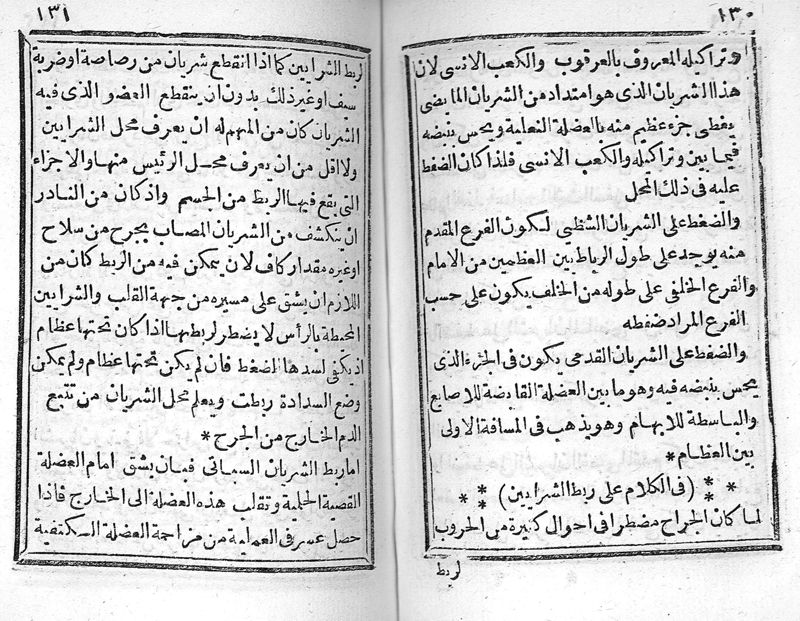 ١٣٠
وتراكيله المعروف بالعرقوب والكعب الانسى لان
هذا الشريان الذى هو امتداد من الشريان المابضى
يغطى جزء عظيم منه بالعضلة النعلية ويحس بنبضه
فيما بين وتراكيله والكعب الانسى فلذا كان الضغط
عليه فى ذلك المحل
والضغط على الشريان الشظيى لكون الفرع المقدم
منه يوجد على طول الرباط بين العظمين من الامام
والفرع الخلفى على طوله من الخلف يكون على حسب
الفرع المراد ضغطه
والضغط على الشريان القدمى يكون فى الجزء الذى
يحس بنبضه فيه وهو ما بين العضلة القابضة للاصابع
والباسطة للابهام وهو يذهب فى المسافة الاولى
بين العظام *
* * (فى الكلام على ربط الشرايين) * *
لما كان الجراح مضطرا فى احوال كثيرة من الحروب
لربط
١٣١
لربط الشرايين كما اذا انقطع شريان من رصاصة اوضربة
سيف اوغير ذلك بدون ان ينقطع العضو الذى فيه
الشريان كان من المهم له ان يعرف محل الشرايين
ولا اقل من ان يعرف محل الرئيس منها والاجزاء
التى يقع فيها الربط من الجسم واذ كان من النادر
ان ينكشف من الشريان المصاب بجرح من سلاح
اوغيره مقدار كاف لان يمكن فيه من الربط كان من
اللازم ان يشق على مسيره من جهة القلب والشرايين
المحيطة بالرأس لا يضطر لربطها اذا كان تحتها عظام
اذ يكفى لسدها الضغط فان لم يكن تحتها عظام ولم يمكن
وضع السدادة ربطت ويعلم محل الشريان من تتبع
الدم الخارج من الجرح *
اما ربط الشريان السباتى فبان يشق امام العضلة
القصية الحلمية وتقلب هذه العضلة الى الخارج فاذا
حصل عسر فى العملية من مزاحمة العضلة الكتفية